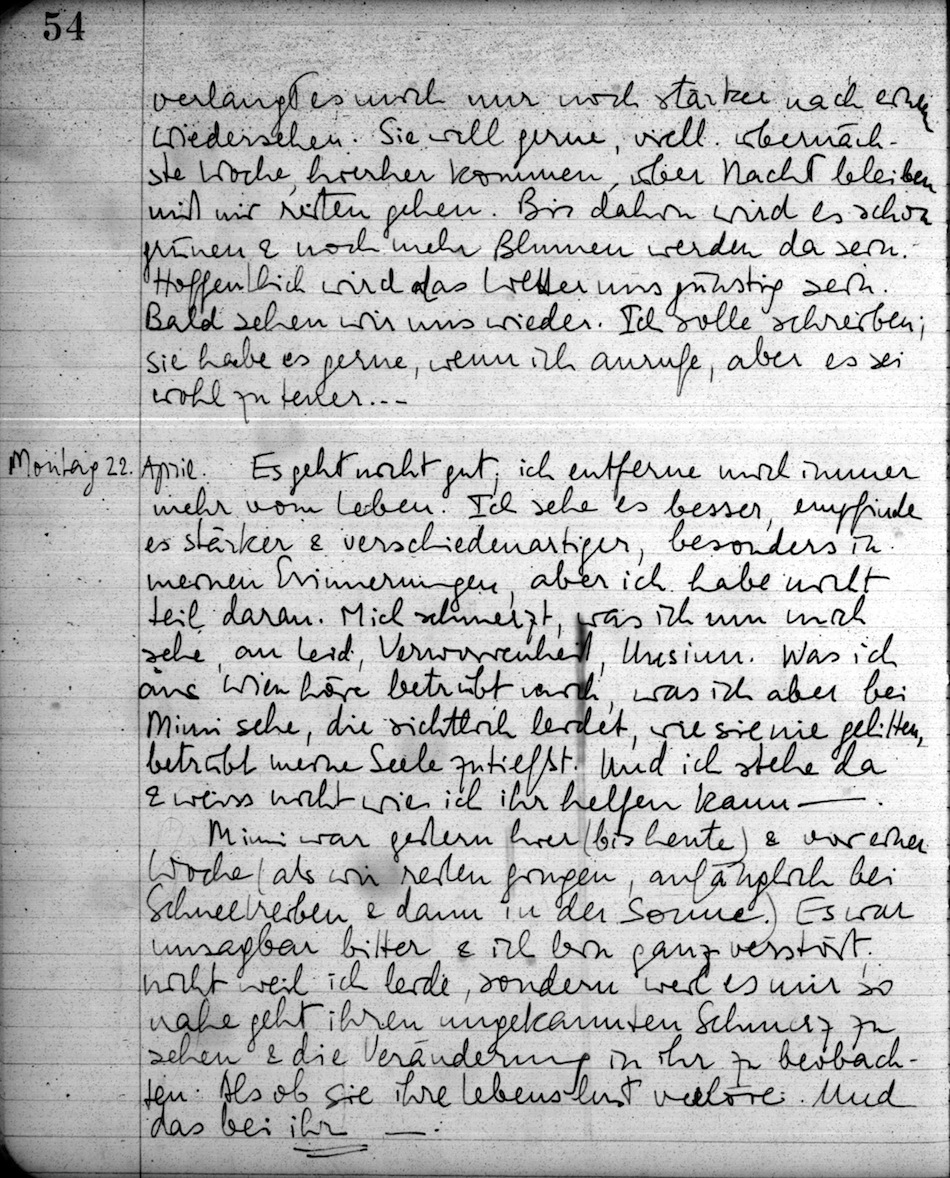 54
verlangt es mich nur noch stärker nach einem
Wiedersehen. Sie will gerne, viell. übernäch-
ste Woche, hierher kommen, über Nacht bleiben
mit mir reiten gehen. Bis dahin wird es schon
grünen & noch mehr Blumen werden da sein.
Hoffentlich wird das Wetter uns günstig sein.
Bald sehen wir uns wieder. Ich solle schreiben;
sie habe es gerne, wenn ich anrufe, aber es sei
wohl zu teuer...
Montag 22. April. Es geht nicht gut; ich entferne mich immer
mehr vom Leben. Ich sehe es besser, empfinde
es stärker & verschiedenartiger, besonders in
meinen Erinnerungen, aber ich habe nicht
teil daran. Mich schmerzt, was ich um mich
sehe, an Leid, Verworrenheit, Unsinn. Was ich
aus Wien höre betrübt mich, was ich aber bei
Mimi sehe, die sichtlich leidet, wie sie nie gelitten,
betrübt meine Seele zutiefst. Und ich stehe da
& weiss nicht wie ich ihr helfen kann —.
Mimi war gestern hier (bis heute) & vor einer
Woche (als wir reiten gingen, anfänglich bei
Schneetreiben & dann in der Sonne.) Es war
unsagbar bitter & ich bin ganz verstört,
nicht weil ich leide, sondern weil es mir so
nahe geht ihren ungekannten Schmerz zu
sehen & die Veränderung in ihr zu beobach-
ten. Als ob sie ihre Lebenslust verlöre. Und
das bei ihr —.